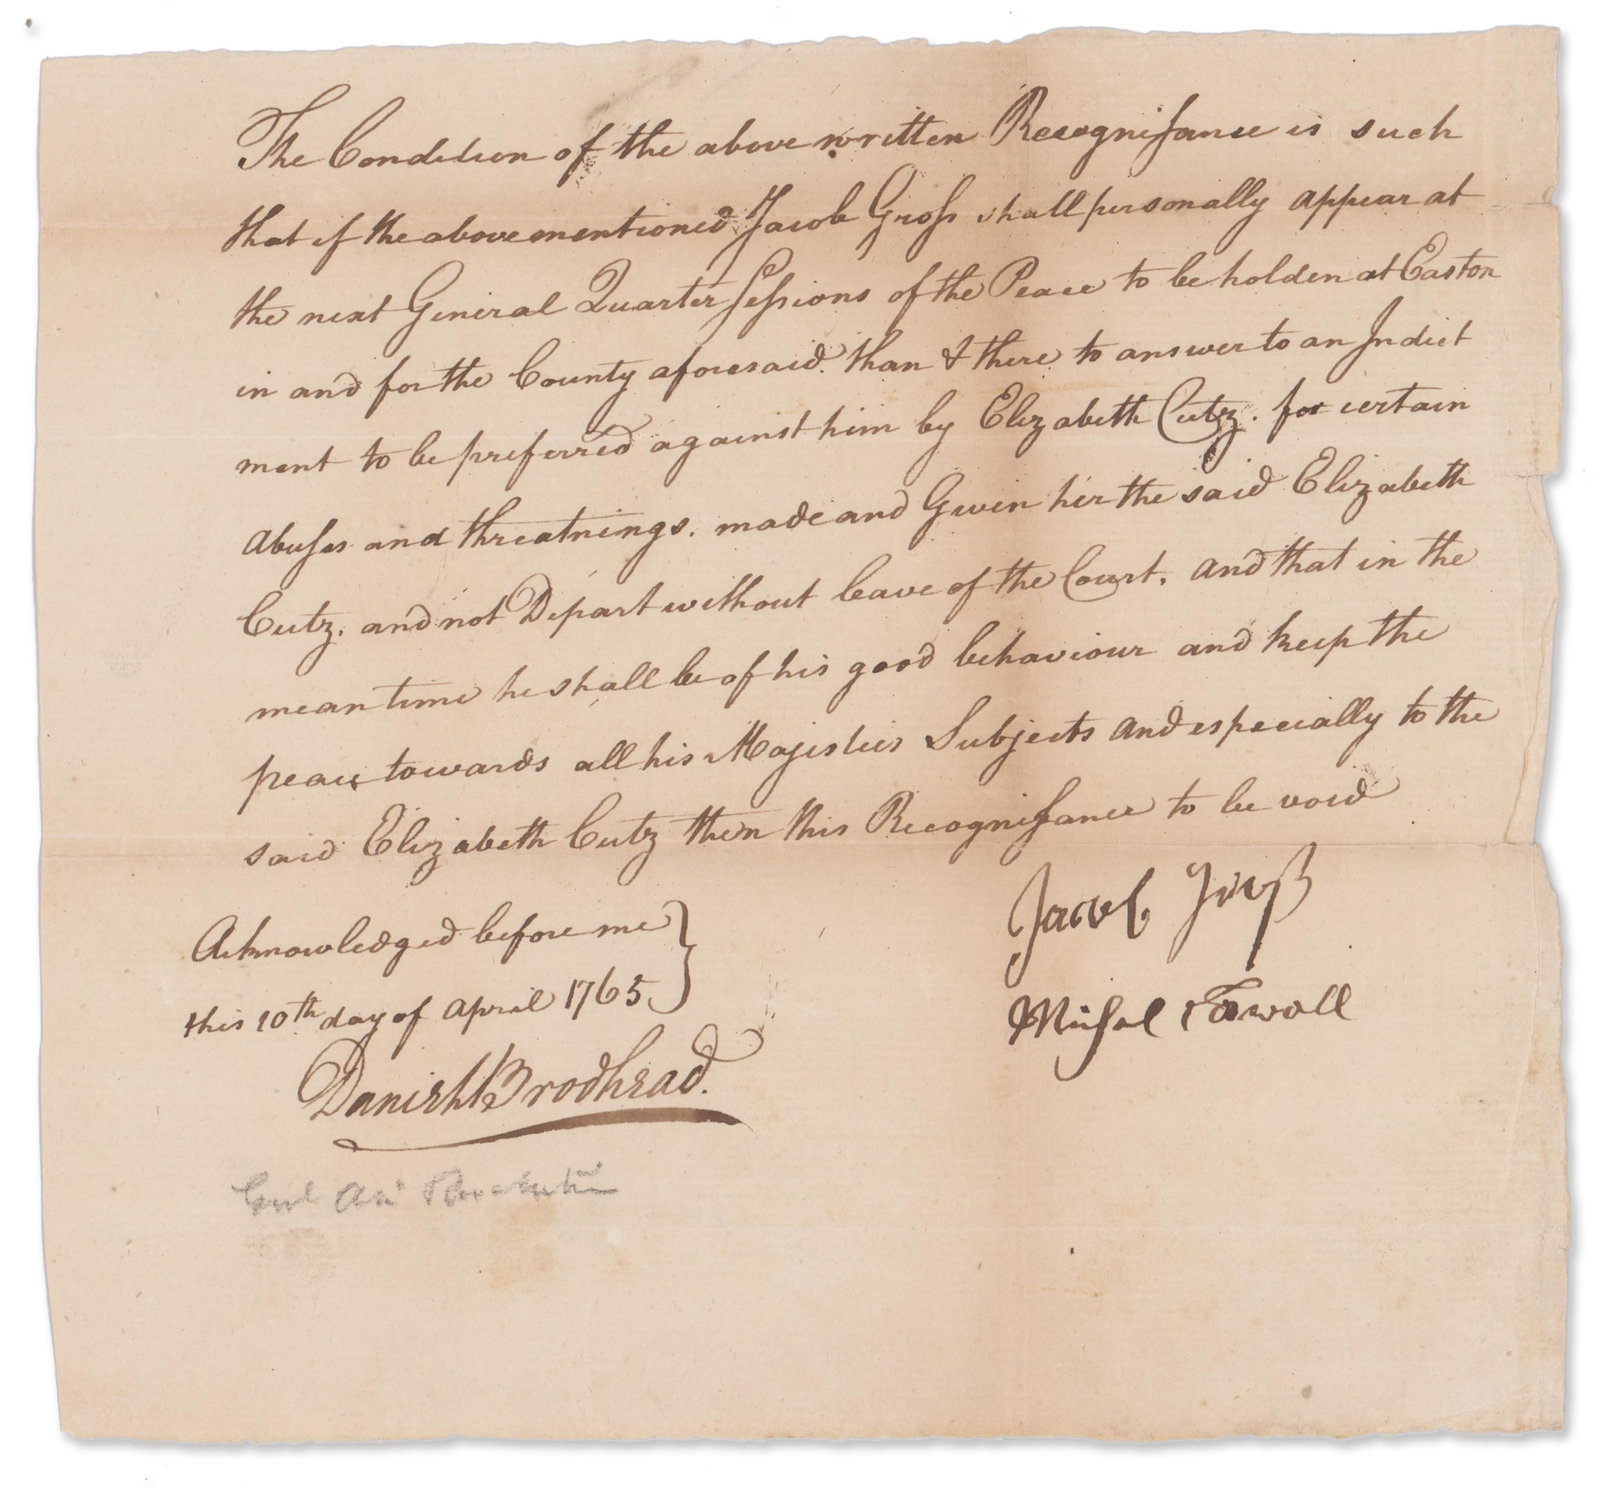 The Condition of the above written Recognisance is such
that if the abovementioned Jacob Gross shall personally appear at
the next General Quarter Sessions of the Peace to be holden at Easton
in and for the County aforesaid. than & there to answer to an Indict
ment to be preferred against him by Elizabeth Cutz. for certain
abuses and threatnings. made and Given her the said Elizabeth
Cutz. and not Depart without leave of the Court. and that in the
mean time he shall be of his good behaviour and keep the
peace towards all his Majesties Subjects and especially to the
said Elizabeth Cutz then this Recognissance to be void
Jacob Groß
Acknowledged before me
this 10th day of April 1765
Daniel Brodhead.